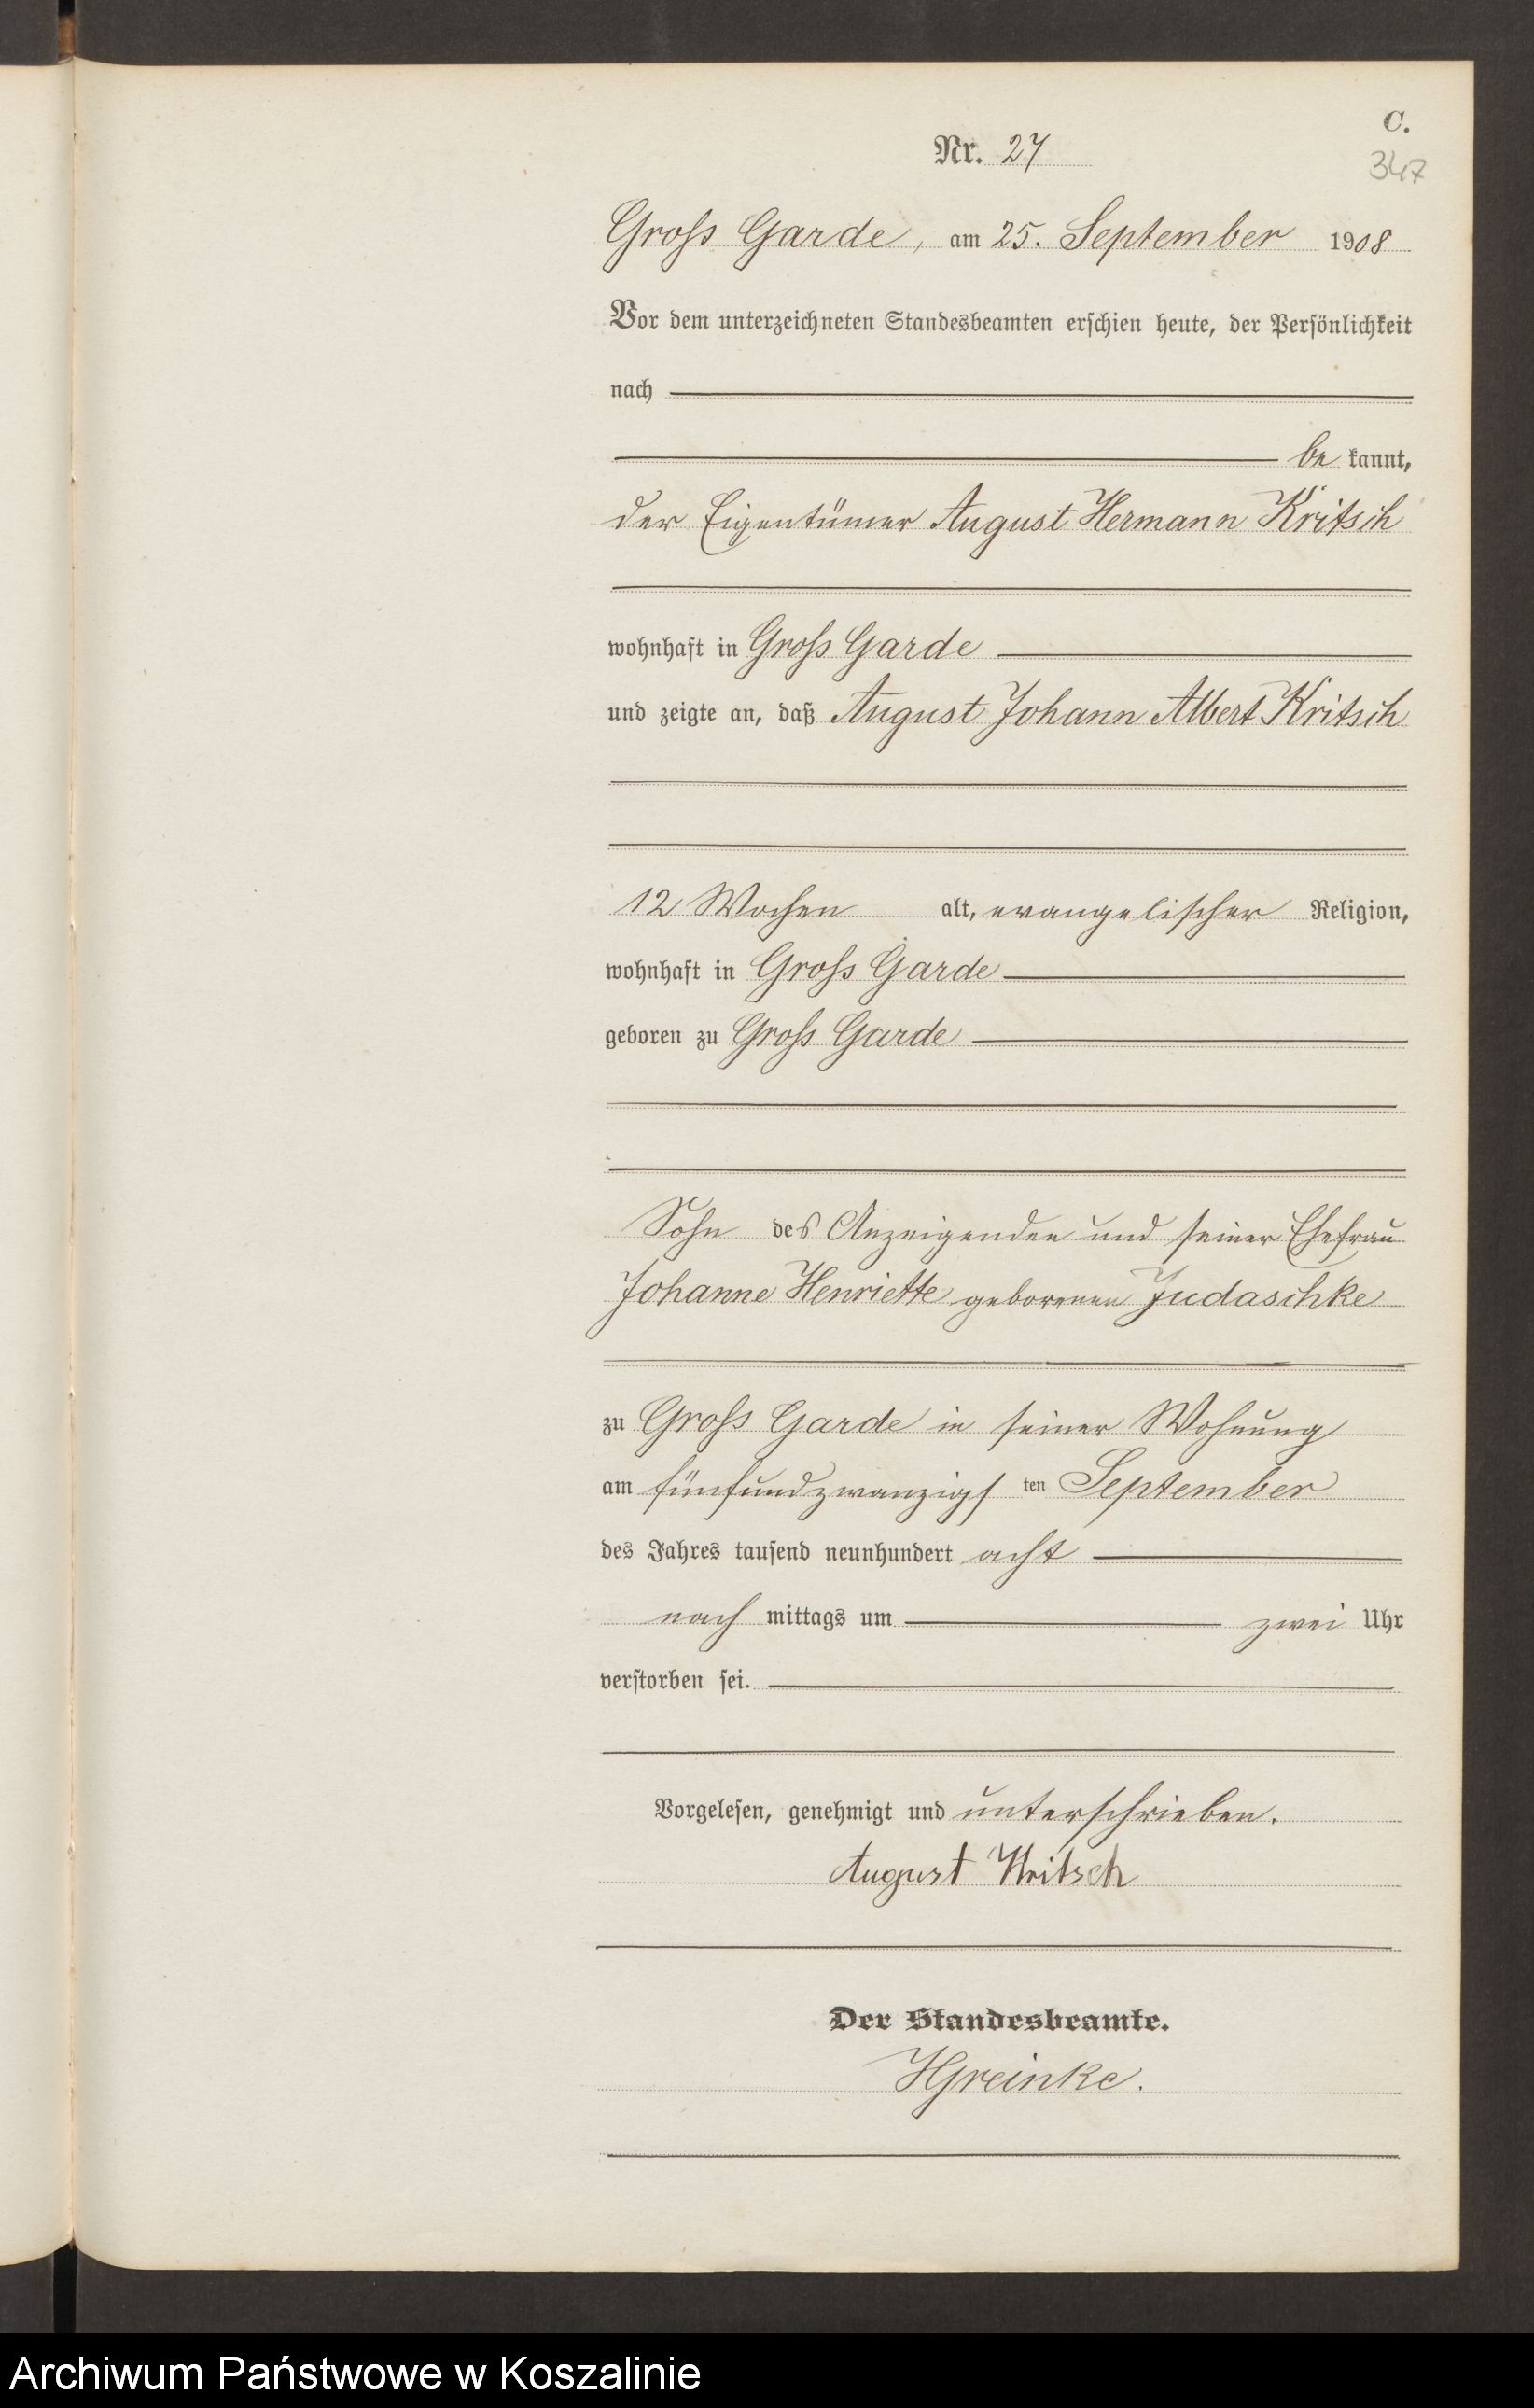 C.
Nr. 27
347
Gross Garde, am 25. September 1908
Vor dem unterzeichneten Standesbeamten erschien heute, der Persönlichkeit
nach
be kannt,
der Eigentümer August Hermann Kritsch
wohnhaft in Gross Garde
und zeigte an, daß August Johann Albert Kritsch
12 Wochen alt, evangelischer Religion,
wohnhaft in Gross Garde
geboren zu Gross Garde
Sohn des Anzeigenden und seiner Ehefrau
Johanne Henriette geborenen Judaschke
zu Gross Garde in seiner Wohnung
am fünfundzwanzigs ten September
des Jahres tausend neunhundert acht
nach mittags um zwei Uhr
verstorben sei.
Vorgelesen, genehmigt und unterschrieben.
August Kritsch
Der Standesbeamte.
HGreinke.
Archiwum Państwowe w Koszalinie